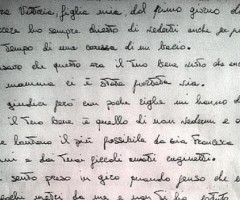 Vittoria, figlia mia dal primo giorno d
ho sempre chiesto di vederti anche per p
tempo di una carezza di un bacio.
che questo era il tuo bene visto che
mamma ci è stata portata via.
giudice però con poche righe mi hanno
il tuo bene è quello di non vedermi e
lontano il più possibile da zia Francesca
e dai tuoi piccoli amati cuginetti.
sento preso in giro quando penso che
pochi metri da me e non ti ho